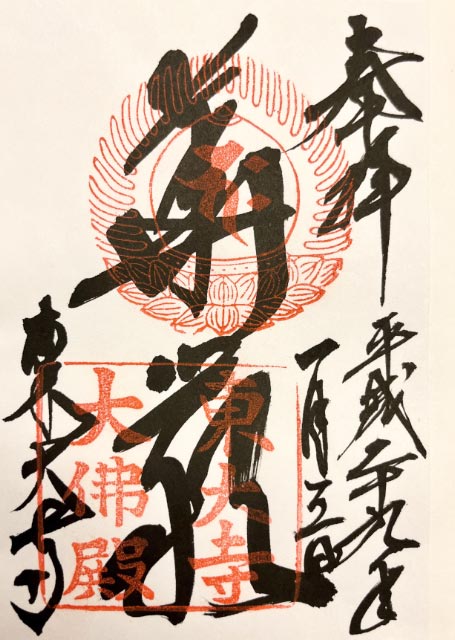 奉拝
平成二十九年
一月五日
華厳
東大寺
東大寺
大佛殿